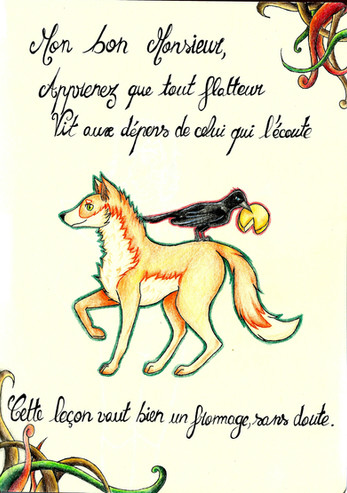 Mon bon Monsieur,
Apprenez que tout flatteur
Vit aux dépens de celui qui l'écoute
Cette leçon vaut bien un fromage, sans doute.